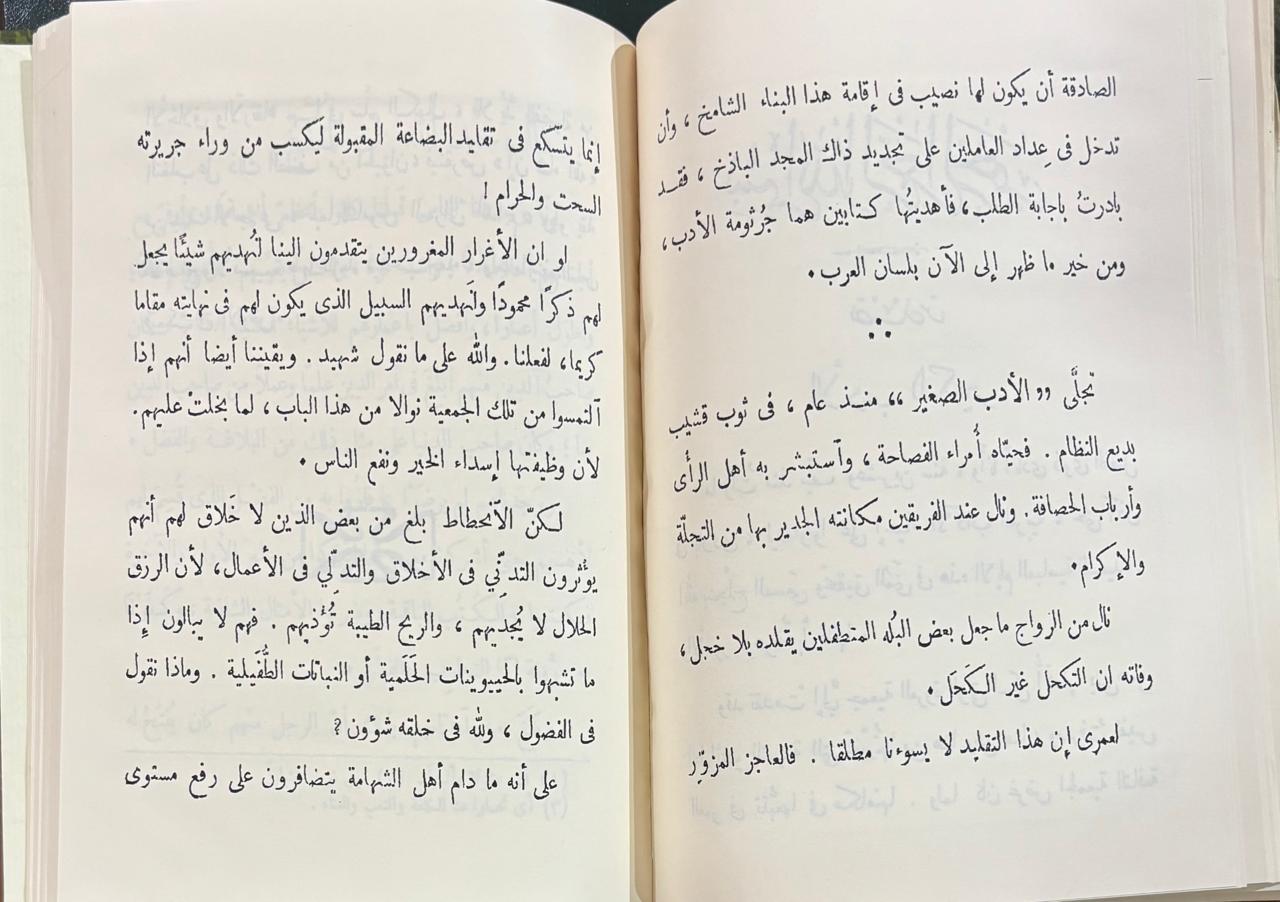 الصادقة أن يكون لها نصيب فى إقامة هذا البناء الشامخ ، وأن
تدخل فى عِداد العاملين على تجديد ذاك المجد الباذخ ، فقــد
بادرتُ باجابة الطلب ، فأهديتُها كـتابين هما جُرثومة الأدب ،
ومن خير ما ظهر إلى الآن بلسان العرب .
تجلَّى ”الأدب الصغير“ منــذ عام ، فى ثوب قشيب
بديع النظام . فحيّاه أُمراء الفصاحة ، وٱستبشر به أهل الرأى
وأرباب الحصافة . ونال عند الفريقين مكانته الجدير بها من التجلّة
والإكرام .
نال من الرواج ما جعل بعض البُله المتطفلين يقلده بلا خجل ،
وفاته ان التكحل غير الكَحَل .
لعمرى إن هذا التقليد لا يسوءنا مطلقا . فالعاجز المزوِّر
إنما يتسّكع فى تقليد البضاعة المقبولة ليكسب من وراء جريرته
السحت والحرام !
لو ان الأغرار المغرورين يتقدمون الينا لنُهديهم شيئًا يجعل
لهم ذكرًا محمودًا ولنَهديهم السبيل الذى يكون لهم فى نهايته مقاما
كريما ، لفعلنا . والله على ما نقول شهيد . ويقيننا أيضا أنهم إذا
ٱلتمسوا من تلك الجمعية نوالا من هذا الباب ، لما بخلتْ عليهم .
لأن وظيفتها إسداء الخير ونفع الناس .
لكنّ الٱنحطاط بلغ من بعض الذين لا خَلاق لهم أنهم
يؤثرون التدنِّي فى الأخلاق والتدلِّي فى الأعمال ، لأن الرزق
الحلال لا يُجديهم ، والريح الطيبة تُؤذيهم . فهم لا يبالون إذا
ما تشبهوا بالحييوينات الحَلَمية أو النباتات الطُّفَيلية . وماذا نقول
فى الفضول ، ولله فى خلقه شؤون ؟
على أنه ما دام أهل الشهامة يتضافرون على رفع مستوى